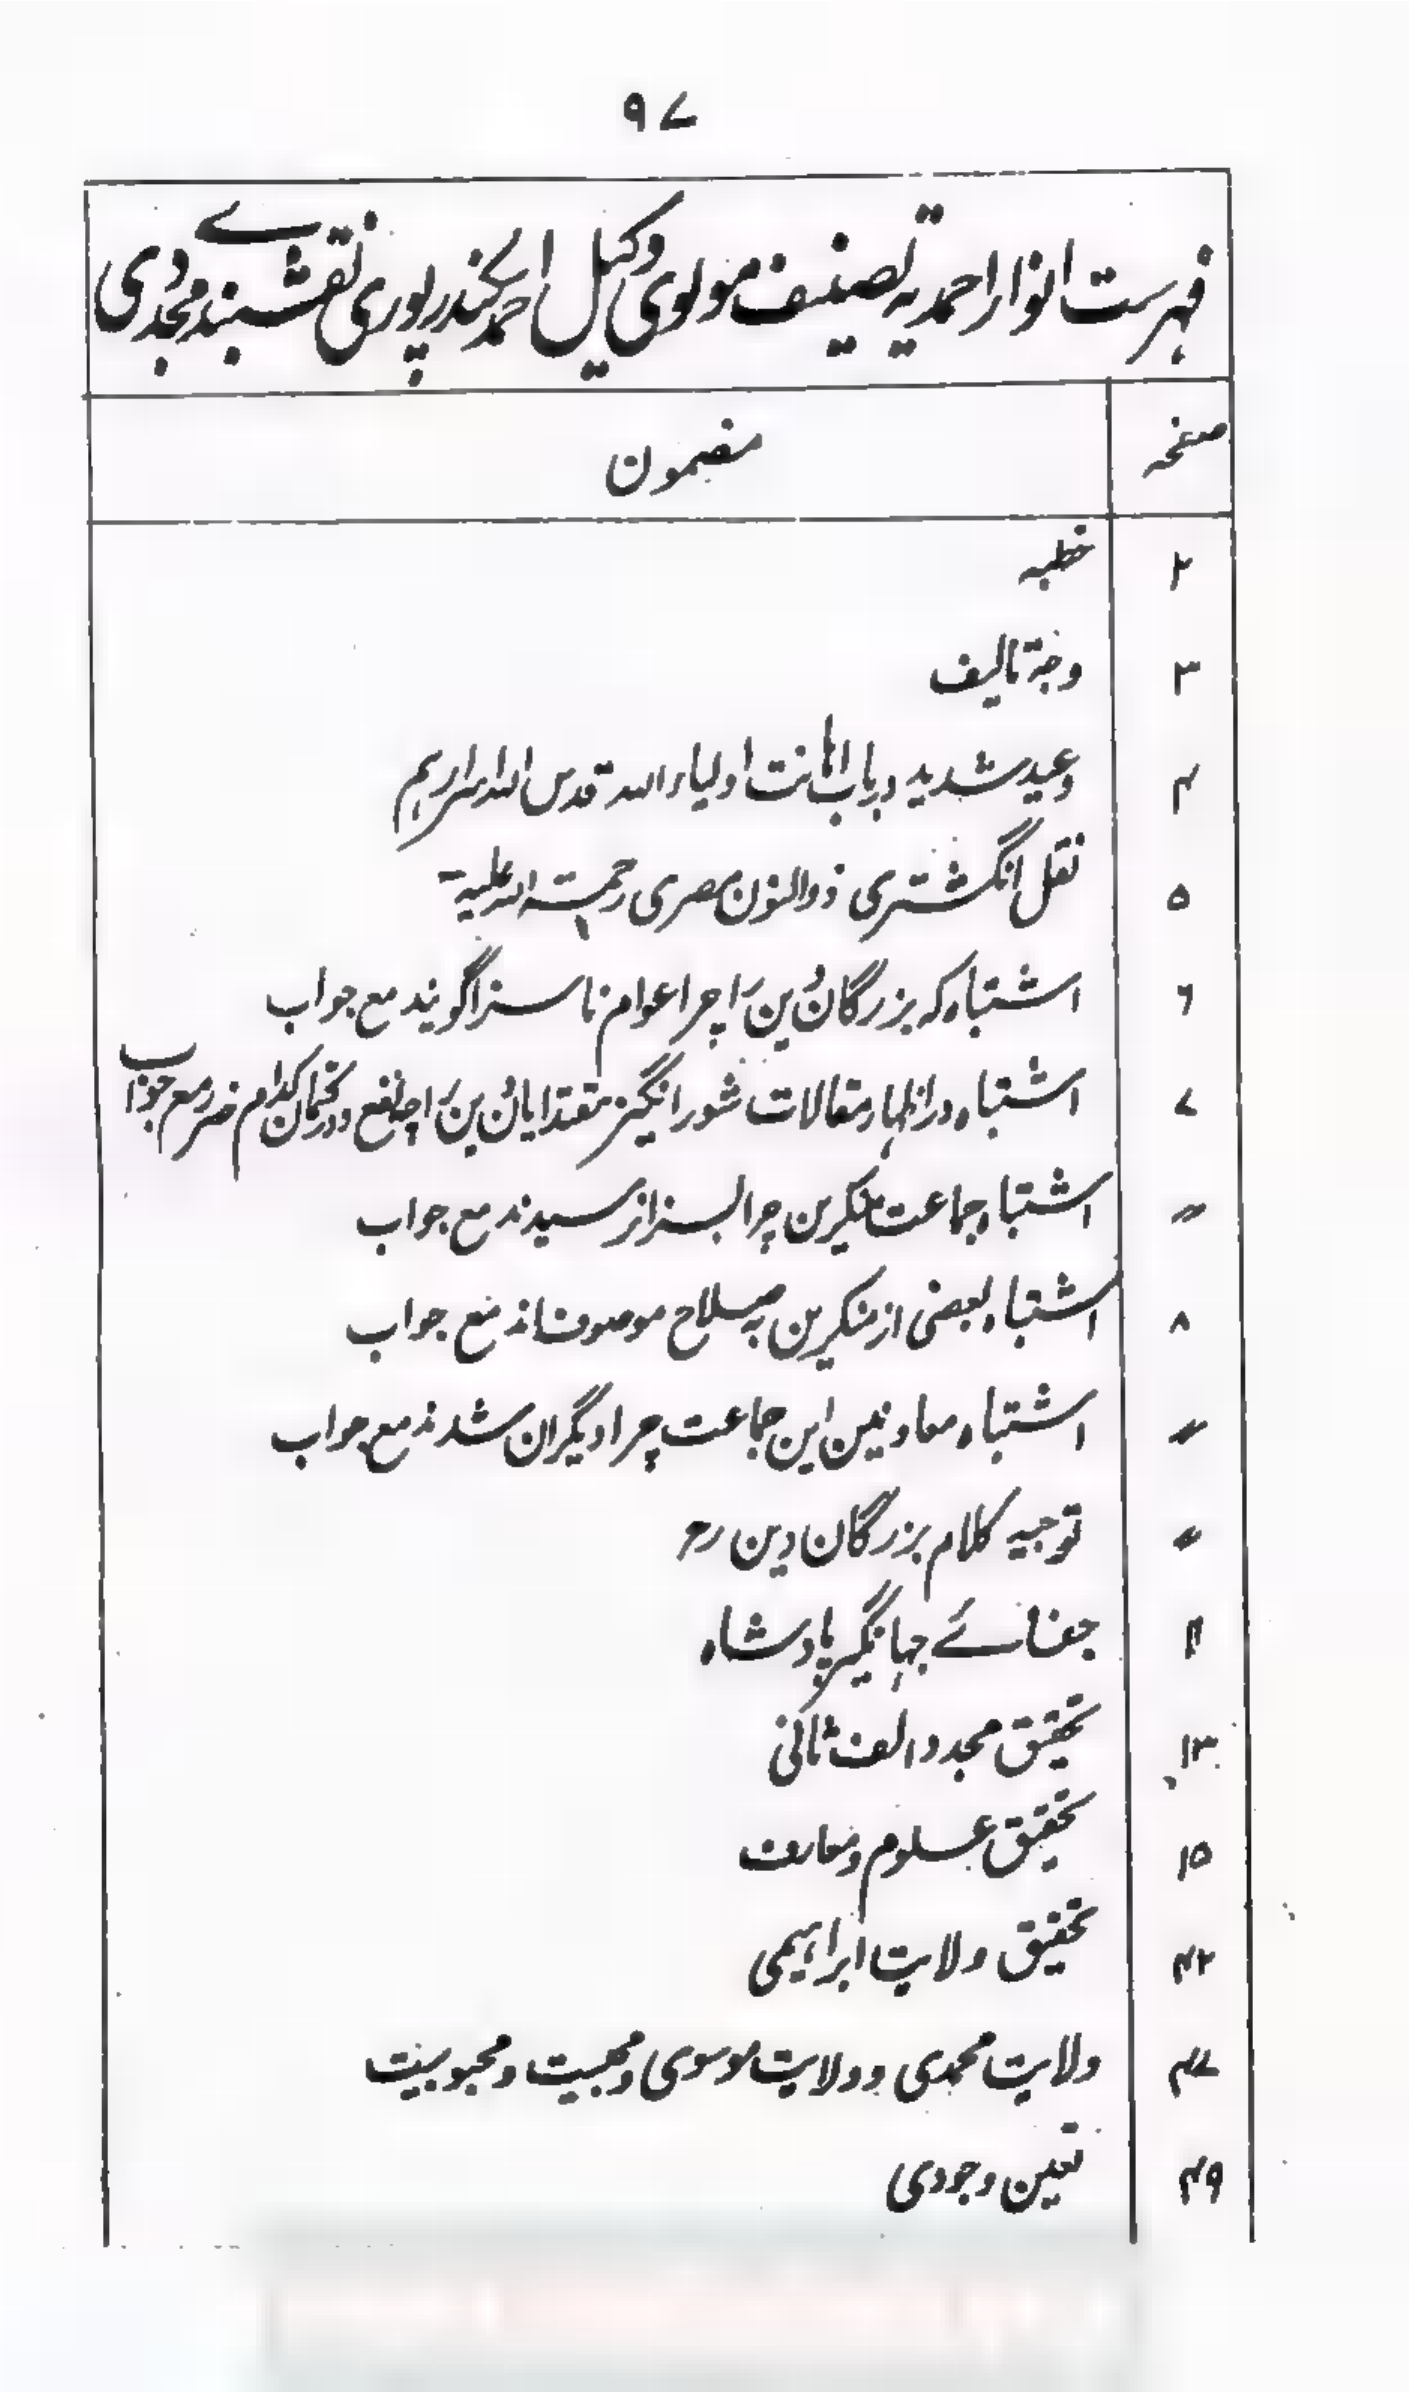 ۹۷
فہرست انوار احمدیہ تصنیف مولوی وکیل احمد سکندرپوری نقشبندی مجددی
صفحہ مضمون
۲ خطبہ
۳ وجۂ تالیف
۴ وعید شدید در باب اہانت اولیاء اللہ قدس اللہ اسرارہم
۵ نقل انگشتری ذوالنون مصری رحمتہ اللہ علیہ
۶ اشتباہ کہ بزرگان دین را چرا عوام ناسزا گویند مع جواب
۷ اشتباہ در اظہار مقالات شور انگیز مقتدایان دین را چہ نفع و در کتمان کدام ضرر مع جواب
〃 اشتباہ جماعت منکرین چرا بسزا نرسیدند مع جواب
۸ اشتباہ بعضی از منکرین بہ صلاح موصوف اند مع جواب
〃 اشتباہ معاونین این جماعت چرا دیگران شدند مع جواب
〃 توجیہ کلام بزرگان دین رح
۱۱ جفائے جہانگیر بادشاہ
۱۳ تحقیق مجدد الف ثانی
۱۵ تحقیق علوم و معارف
۴۲ تحقیق ولایت ابراہیمی
۴۷ ولایت محمدی و ولایت موسوی و محبیت و محبوبیت
۴۹ تعین وجودی